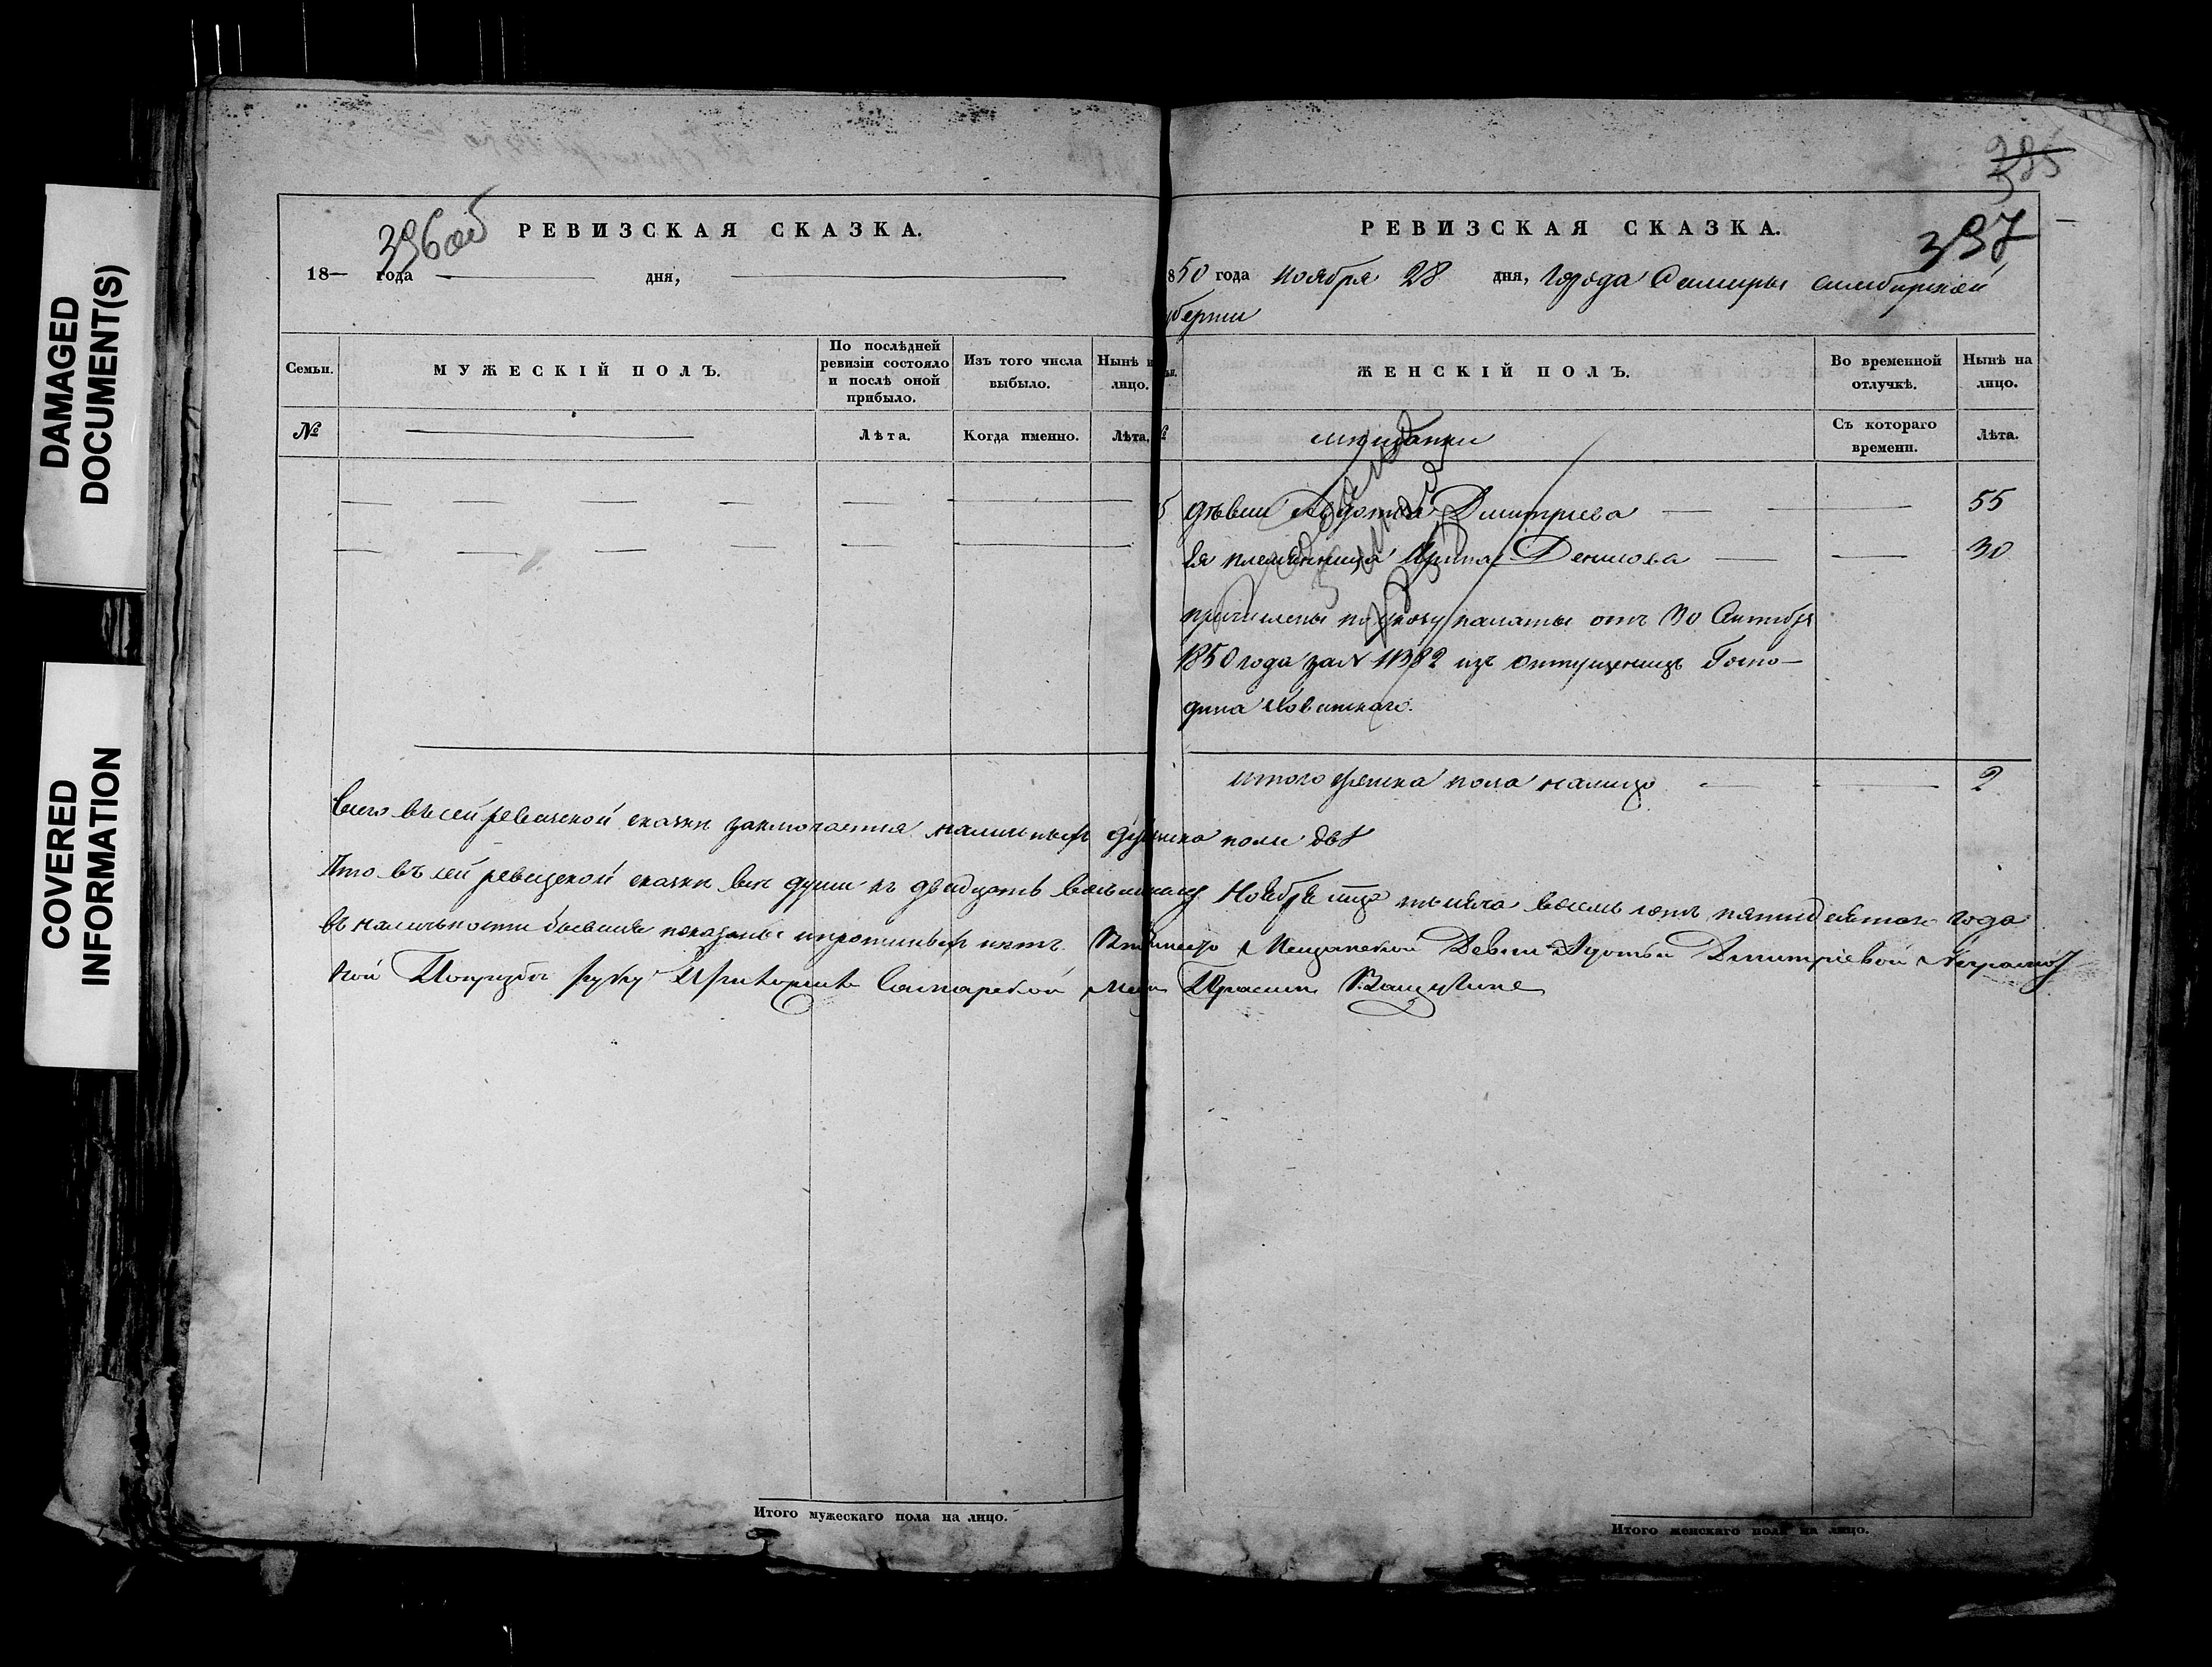 DAMAGED
DOCUMENT(S)
COVERED
INFORMATION
396 об
РЕВИЗСКАЯ СКАЗКА.
18— года дня,
Семьи.
МУЖЕСКІЙ ПОЛЪ.
По послѣдней
ревизіи состояло
и послѣ оной
прибыло.
Изъ того числа
выбыло.
Нынѣ
лицо.
№
Лѣта.
Когда именно.
Лѣта.
385
397
РЕВИЗСКАЯ СКАЗКА.
850 года ноября 28 дня, города Самары симбирской
губерніи
ЖЕНСКІЙ ПОЛЪ.
Во временной
отлучкѣ.
Нынѣ на
лицо.
мѣщанки
Съ котораго
времени.
Лѣта.
5 дѣвки Авдотья Дмитриева 55
Ея племянница Ирина Денисова 30
причислены по указу палаты отъ 30 Сентября
1850 года за № 11382 изъ отпущеницъ Госпо-
дина
итого женска пола налицо 2
Всего в сей ревизской сказки заключается наличныхъ душ женска пола двѣ
Что въ сей ревизской сказки всѣ души къ двадцать Ноября мца тысяча восемь сотъ пятидесятаго года
въ наличности бывшия показаны и прописныхъ нѣтъ. К Мещанской Девки Авдотьи Дмитріевой Неграмот
ной руку Приложилъ Самарской Мещ
Итого мужескаго пола на лицо.
Итого женскаго пола на лицо.